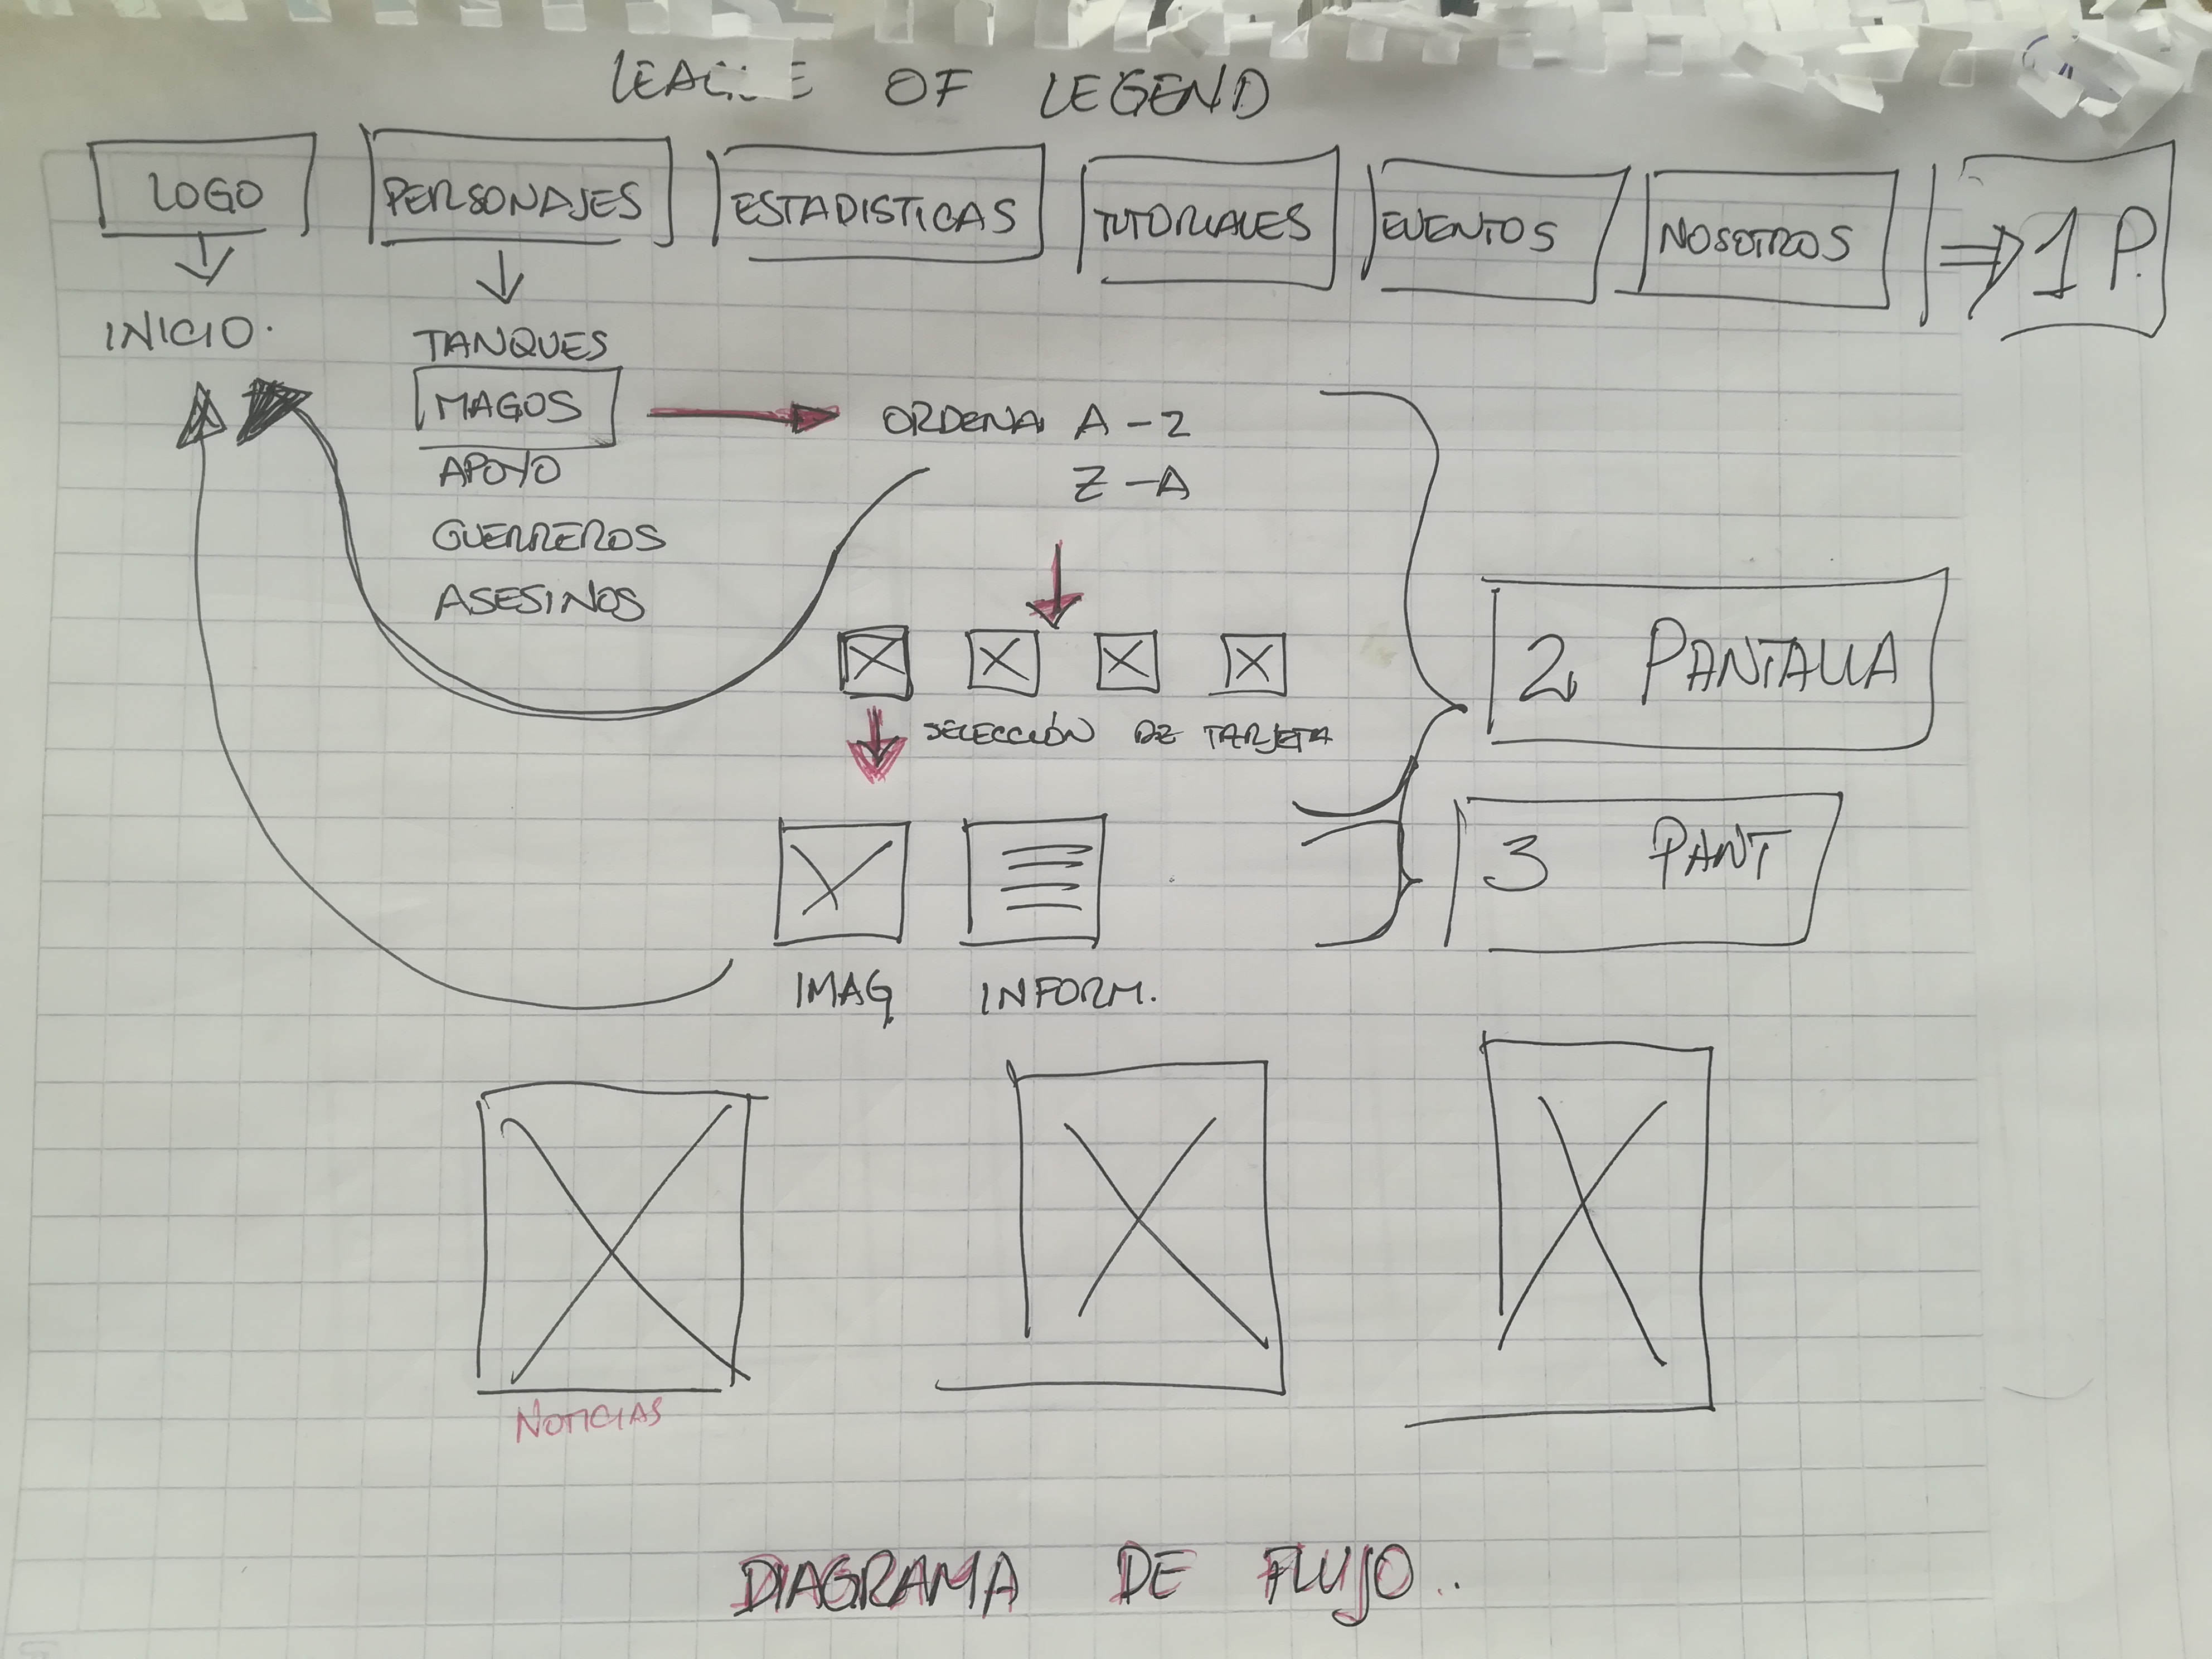 LEAGUE OF LEGEND
LOGO PERSONAJES ESTADISTICAS TUTORIALES EVENTOS NOSOTROS ⇒ 1 P.
INICIO.
TANQUES
MAGOS
APOYO
GUERREROS
ASESINOS
ORDENA A - Z
Z - A
SELECCIÓN DE TARJETA
2 PANTALLA
3 PANT
IMAG INFORM.
NOTICIAS
DIAGRAMA DE FLUJO..